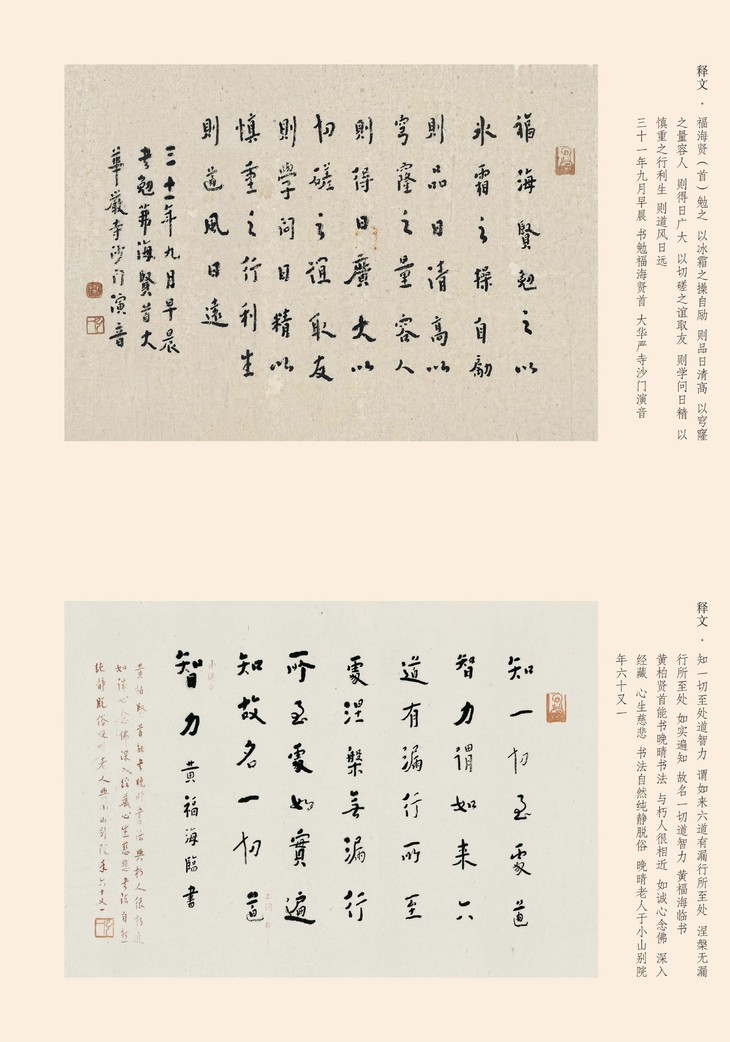 释文·福海贤（首）勉之 以冰霜之操自励 则品日清高 以穹窿
之量容人 则得日广大 以切磋之谊取友 则学问日精 以
慎重之行利生 则道风日远
三十一年九月早晨 书勉福海贤首 大华严寺沙门演音
福海賢勉之以
冰霜之操自勵
則品日清高以
穹窿之量容人
則得日廣大以
切磋之誼取友
則學問日精以
慎重之行利生
則道風日遠
三十一年九月早晨
書勉海賢首大
華嚴寺沙门演音
释文·知一切至处道智力 谓如来六道有漏行所至处 涅槃无漏
行所至处 如实遍知 故名一切道智力 黄福海临书
黄柏贤首能书晚晴书法 与朽人很相近 如诚心念佛 深入
经藏 心生慈悲 书法自然纯静脱俗 晚晴老人于小山别院
年六十又一
知一切至處道
智力謂如来六
道有漏行所至
處涅槃無漏行
所至處如實遍
知故名一切道
智力 黄福海臨書
黄柏賢首能書晚晴書法與朽人很相近
如誠心念佛深入經藏心生慈悲書法自然
純静脱俗晚晴老人與小山别院年六十又一